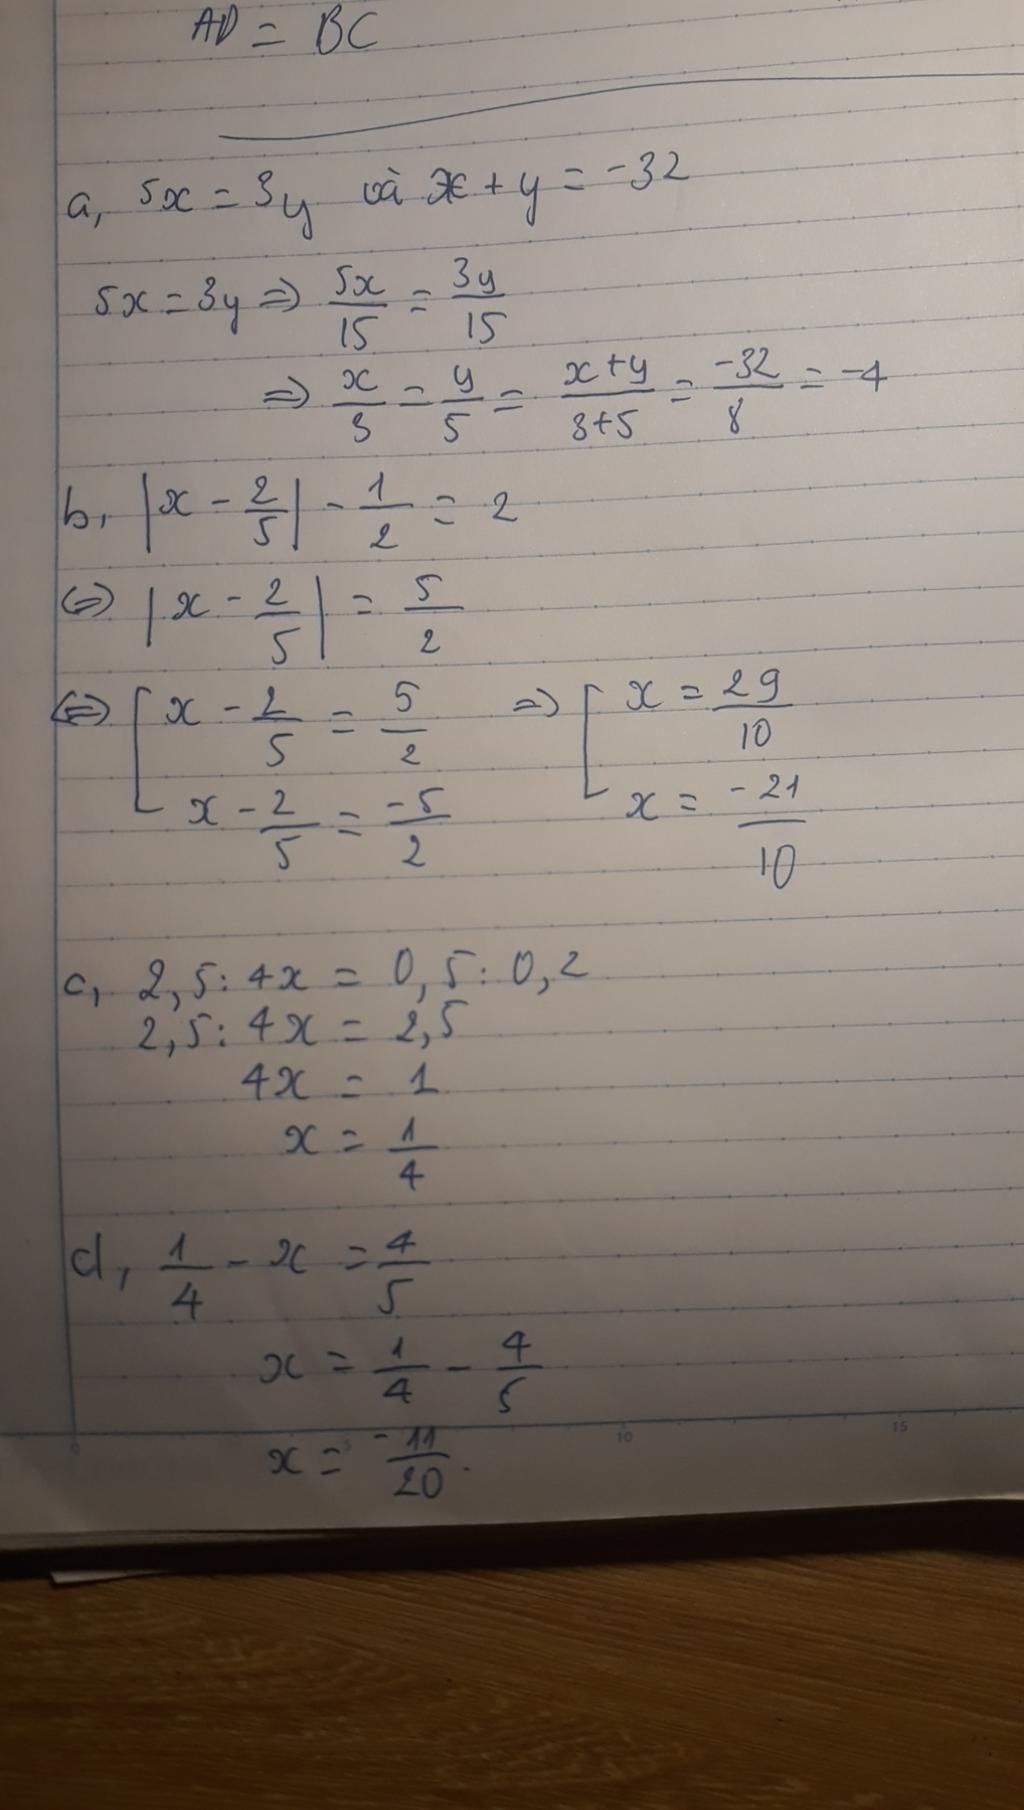 AD = BC
a, 5x = 3y và x + y = -32
5x = 3y => 5x/15 = 3y/15
=> x/3 = y/5 = x+y/3+5 = -32/8 = -4
b, |x - 2/5| - 1/2 = 2
<=> |x - 2/5| = 5/2
<=> [ x - 2/5 = 5/2 => [ x = 29/10
x - 2/5 = -5/2 x = -21/10
c, 2,5 : 4x = 0,5 : 0,2
2,5 : 4x = 2,5
4x = 1
x = 1/4
d, 1/4 - x = 4/5
x = 1/4 - 4/5
x = -11/20.
0 5 10 15